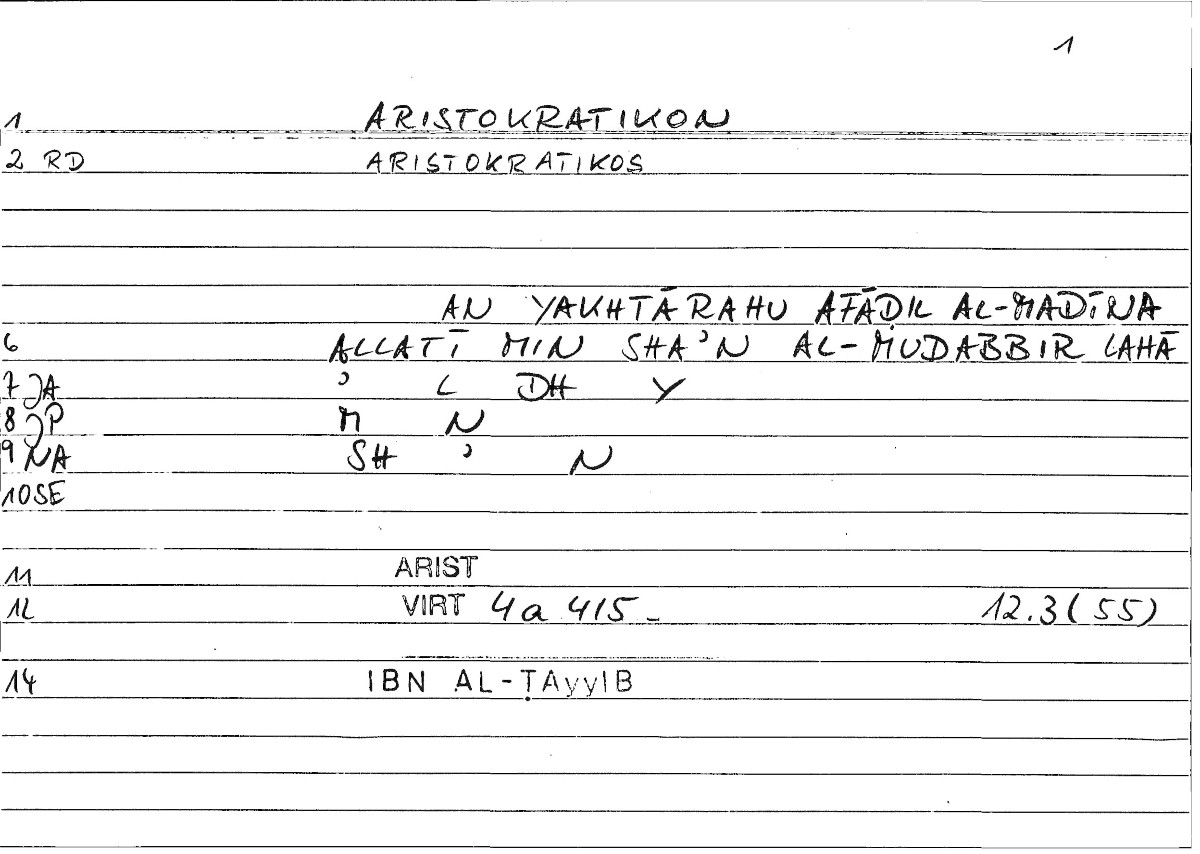 1
1 ARISTOKRATIKON
2 RD ARISTOKRATIKOS
AN YAKHTĀRAHU AFĀḌIL AL-MADĪNA
6 ALLATĪ MIN SHA'N AL-MUDABBIR LAHĀ
7 JA ' L DH Y
8 JP M N
9 NA SH ' N
10 SE
11 ARIST
12 VIRT 4a 4/5- 12.3(55)
14 IBN AL-ṬAyyIB